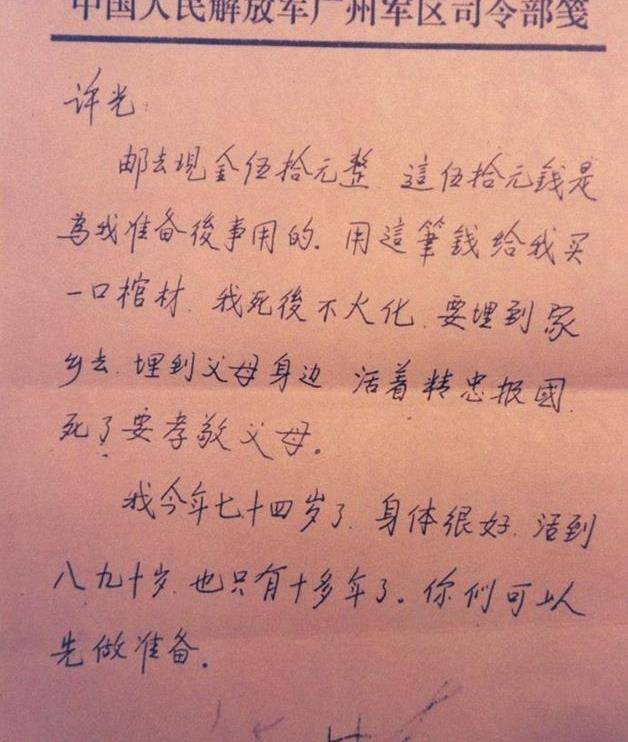 中国人民解放军广州军区司令部笺
许光:
邮去现金伍拾元整.這伍拾元錢是
為我准备後事用的.用這筆錢给我买
一口棺材.我死後不火化.要埋到家
乡去.埋到父母身边 活着精忠报國.
死了要孝敬父母。
我今年七十四岁了.身体很好.活到
八九十岁.也只有十多年了。你们可以
先做准备.